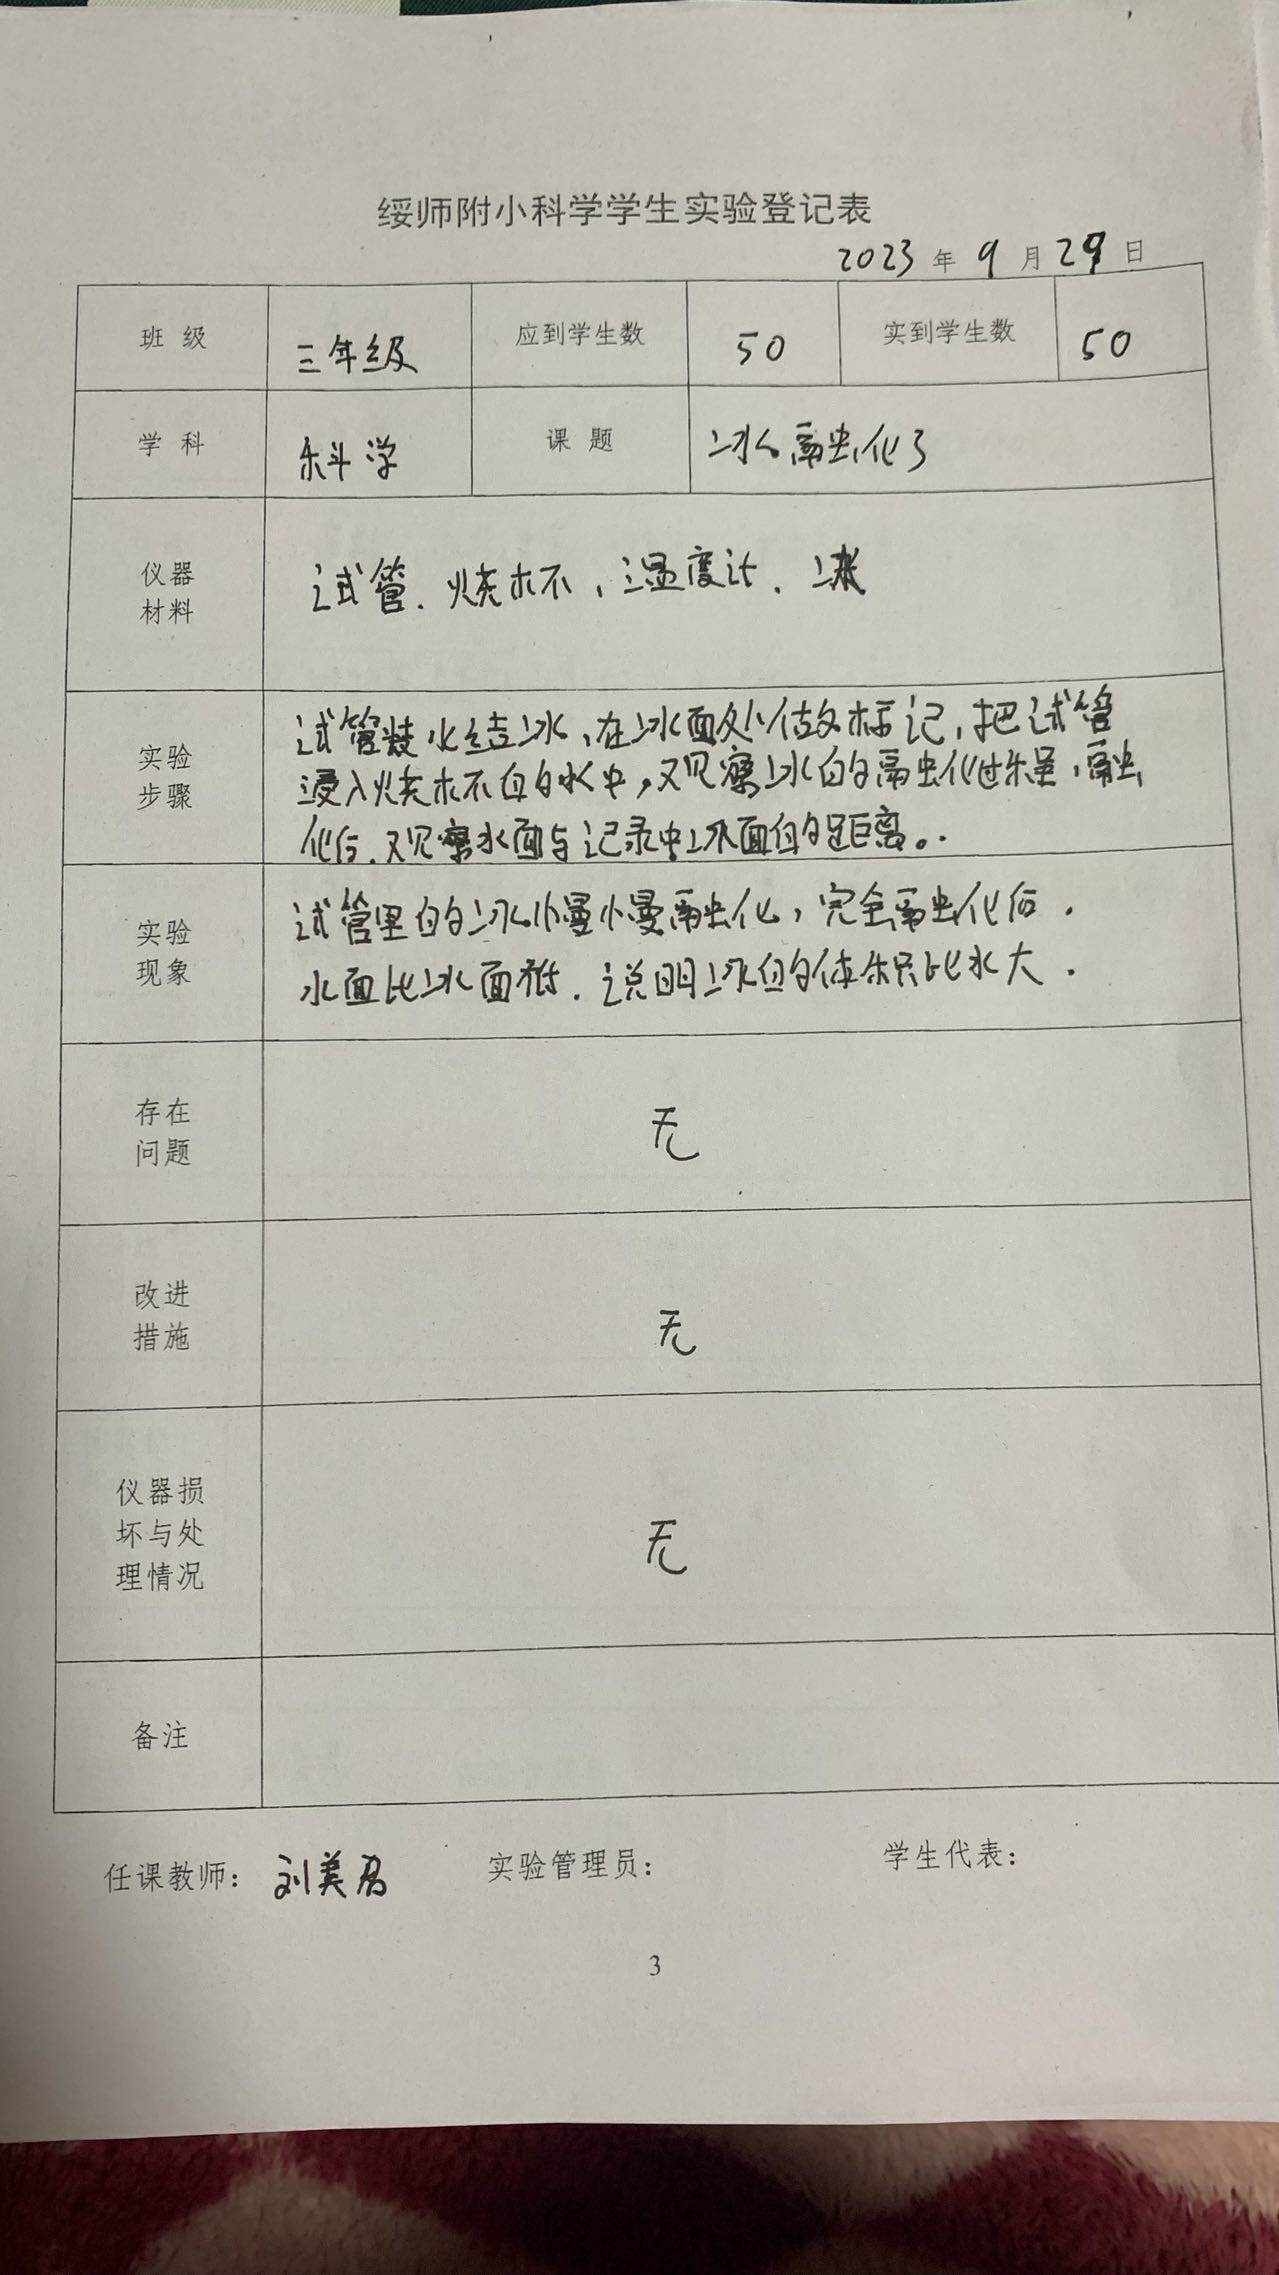 绥师附小科学学生实验登记表
2023 年 9 月 27 日
班 级 三年级 应到学生数 50 实到学生数 50
学 科 科学 课 题 冰融化了
仪器
材料
试管、烧杯,温度计、冰
实验
步骤
试管装水结冰,在冰面处做标记,把试管
浸入烧杯的水中,观察冰的融化过程,融
化后,观察水面与记录中冰面的距离。
实验
现象
试管里的冰慢慢融化,完全融化后,
水面比冰面低,说明冰的体积比水大.
存在
问题
无
改进
措施
无
仪器损
坏与处
理情况
无
备注
任课教师: 刘美君 实验管理员: 学生代表:
3